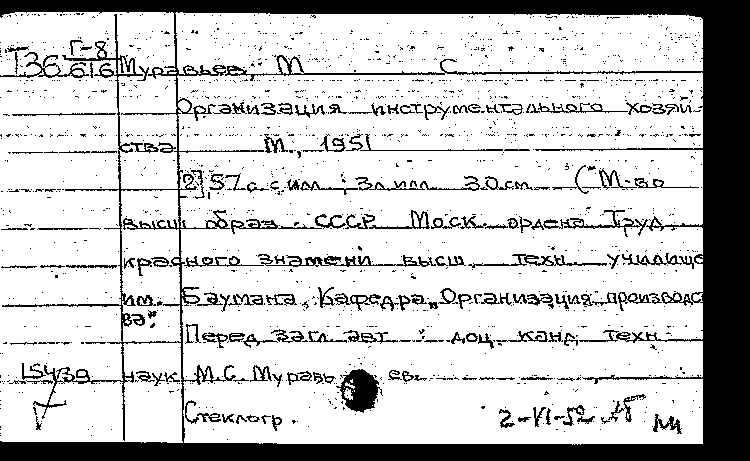 Т36 Г-8
616 Муравьев, М С
Организация инструментального хозяй-
ства М., 1951
[2], 57 с. с илл ; 3 л илл 30 см ("М-во
высш образ. СССР. Моск. ордена Труд.
красного знамени высш. техн. училище
им. Баумана, Кафедра „Организация производст
ва".
Перед загл авт : доц. канд техн
15439 наук М.С. Муравьев.
Стеклогр.
2-VI-52